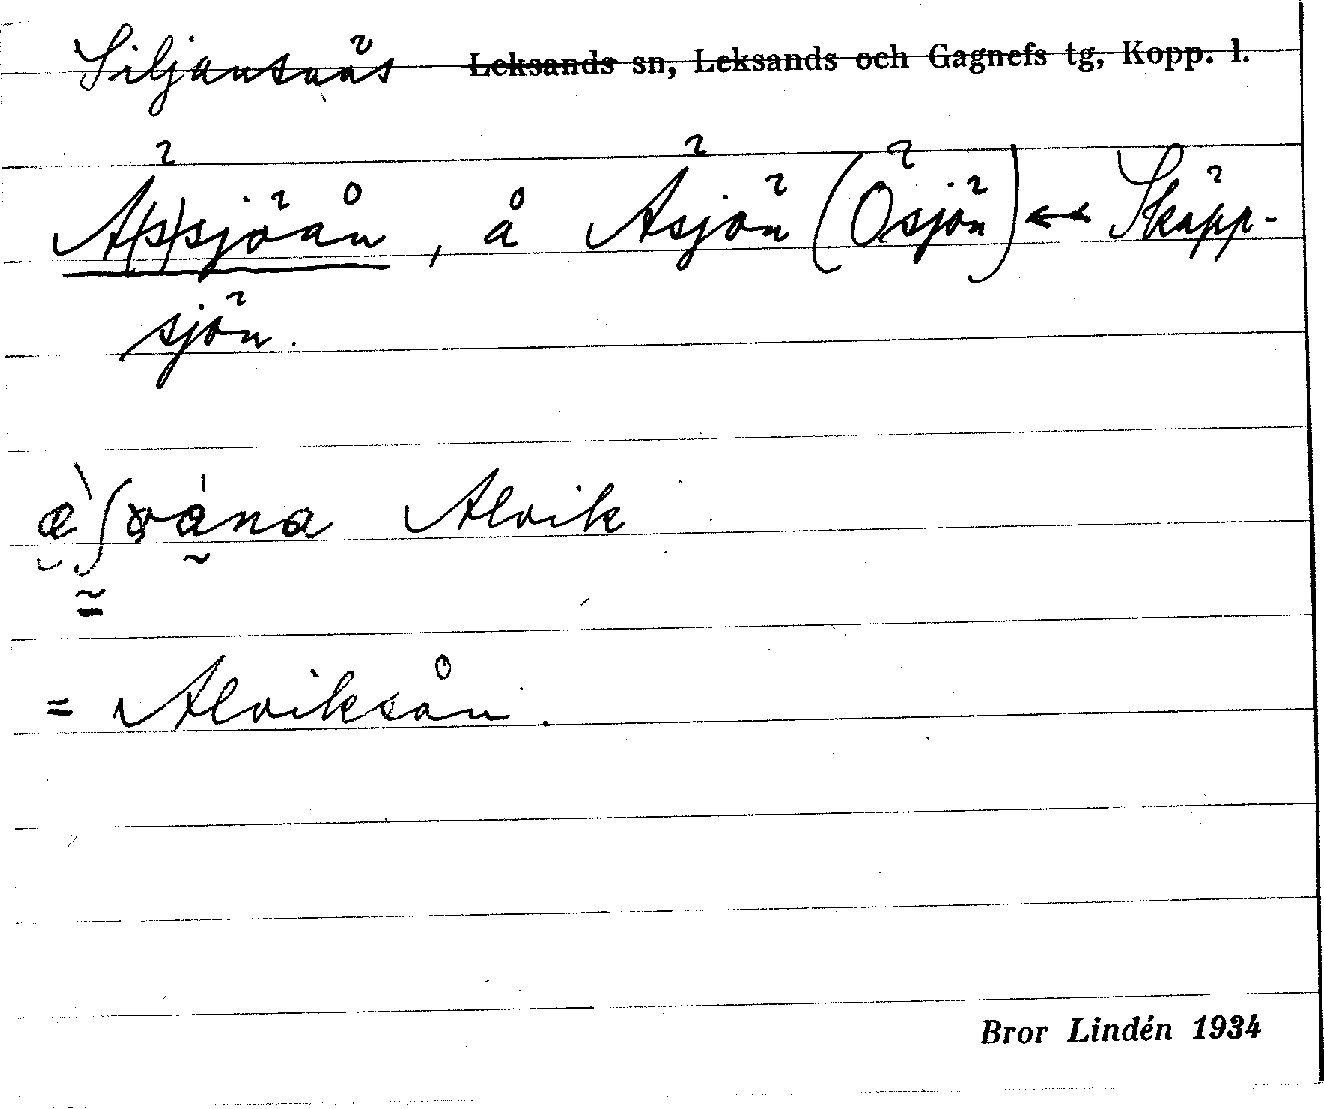 Siljansnäs Leksands sn, Leksands och Gagnefs tg, Kopp. l.
Ä(s)sjöån, å Äsjön (Ösjön) ↔ Skäpp-
sjön.
Alvik
= Alviksån.
Bror Lindén 1934